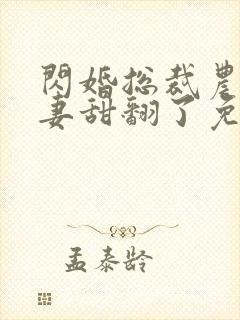 閃婚总裁農
妻甜翻了免
孟泰龄